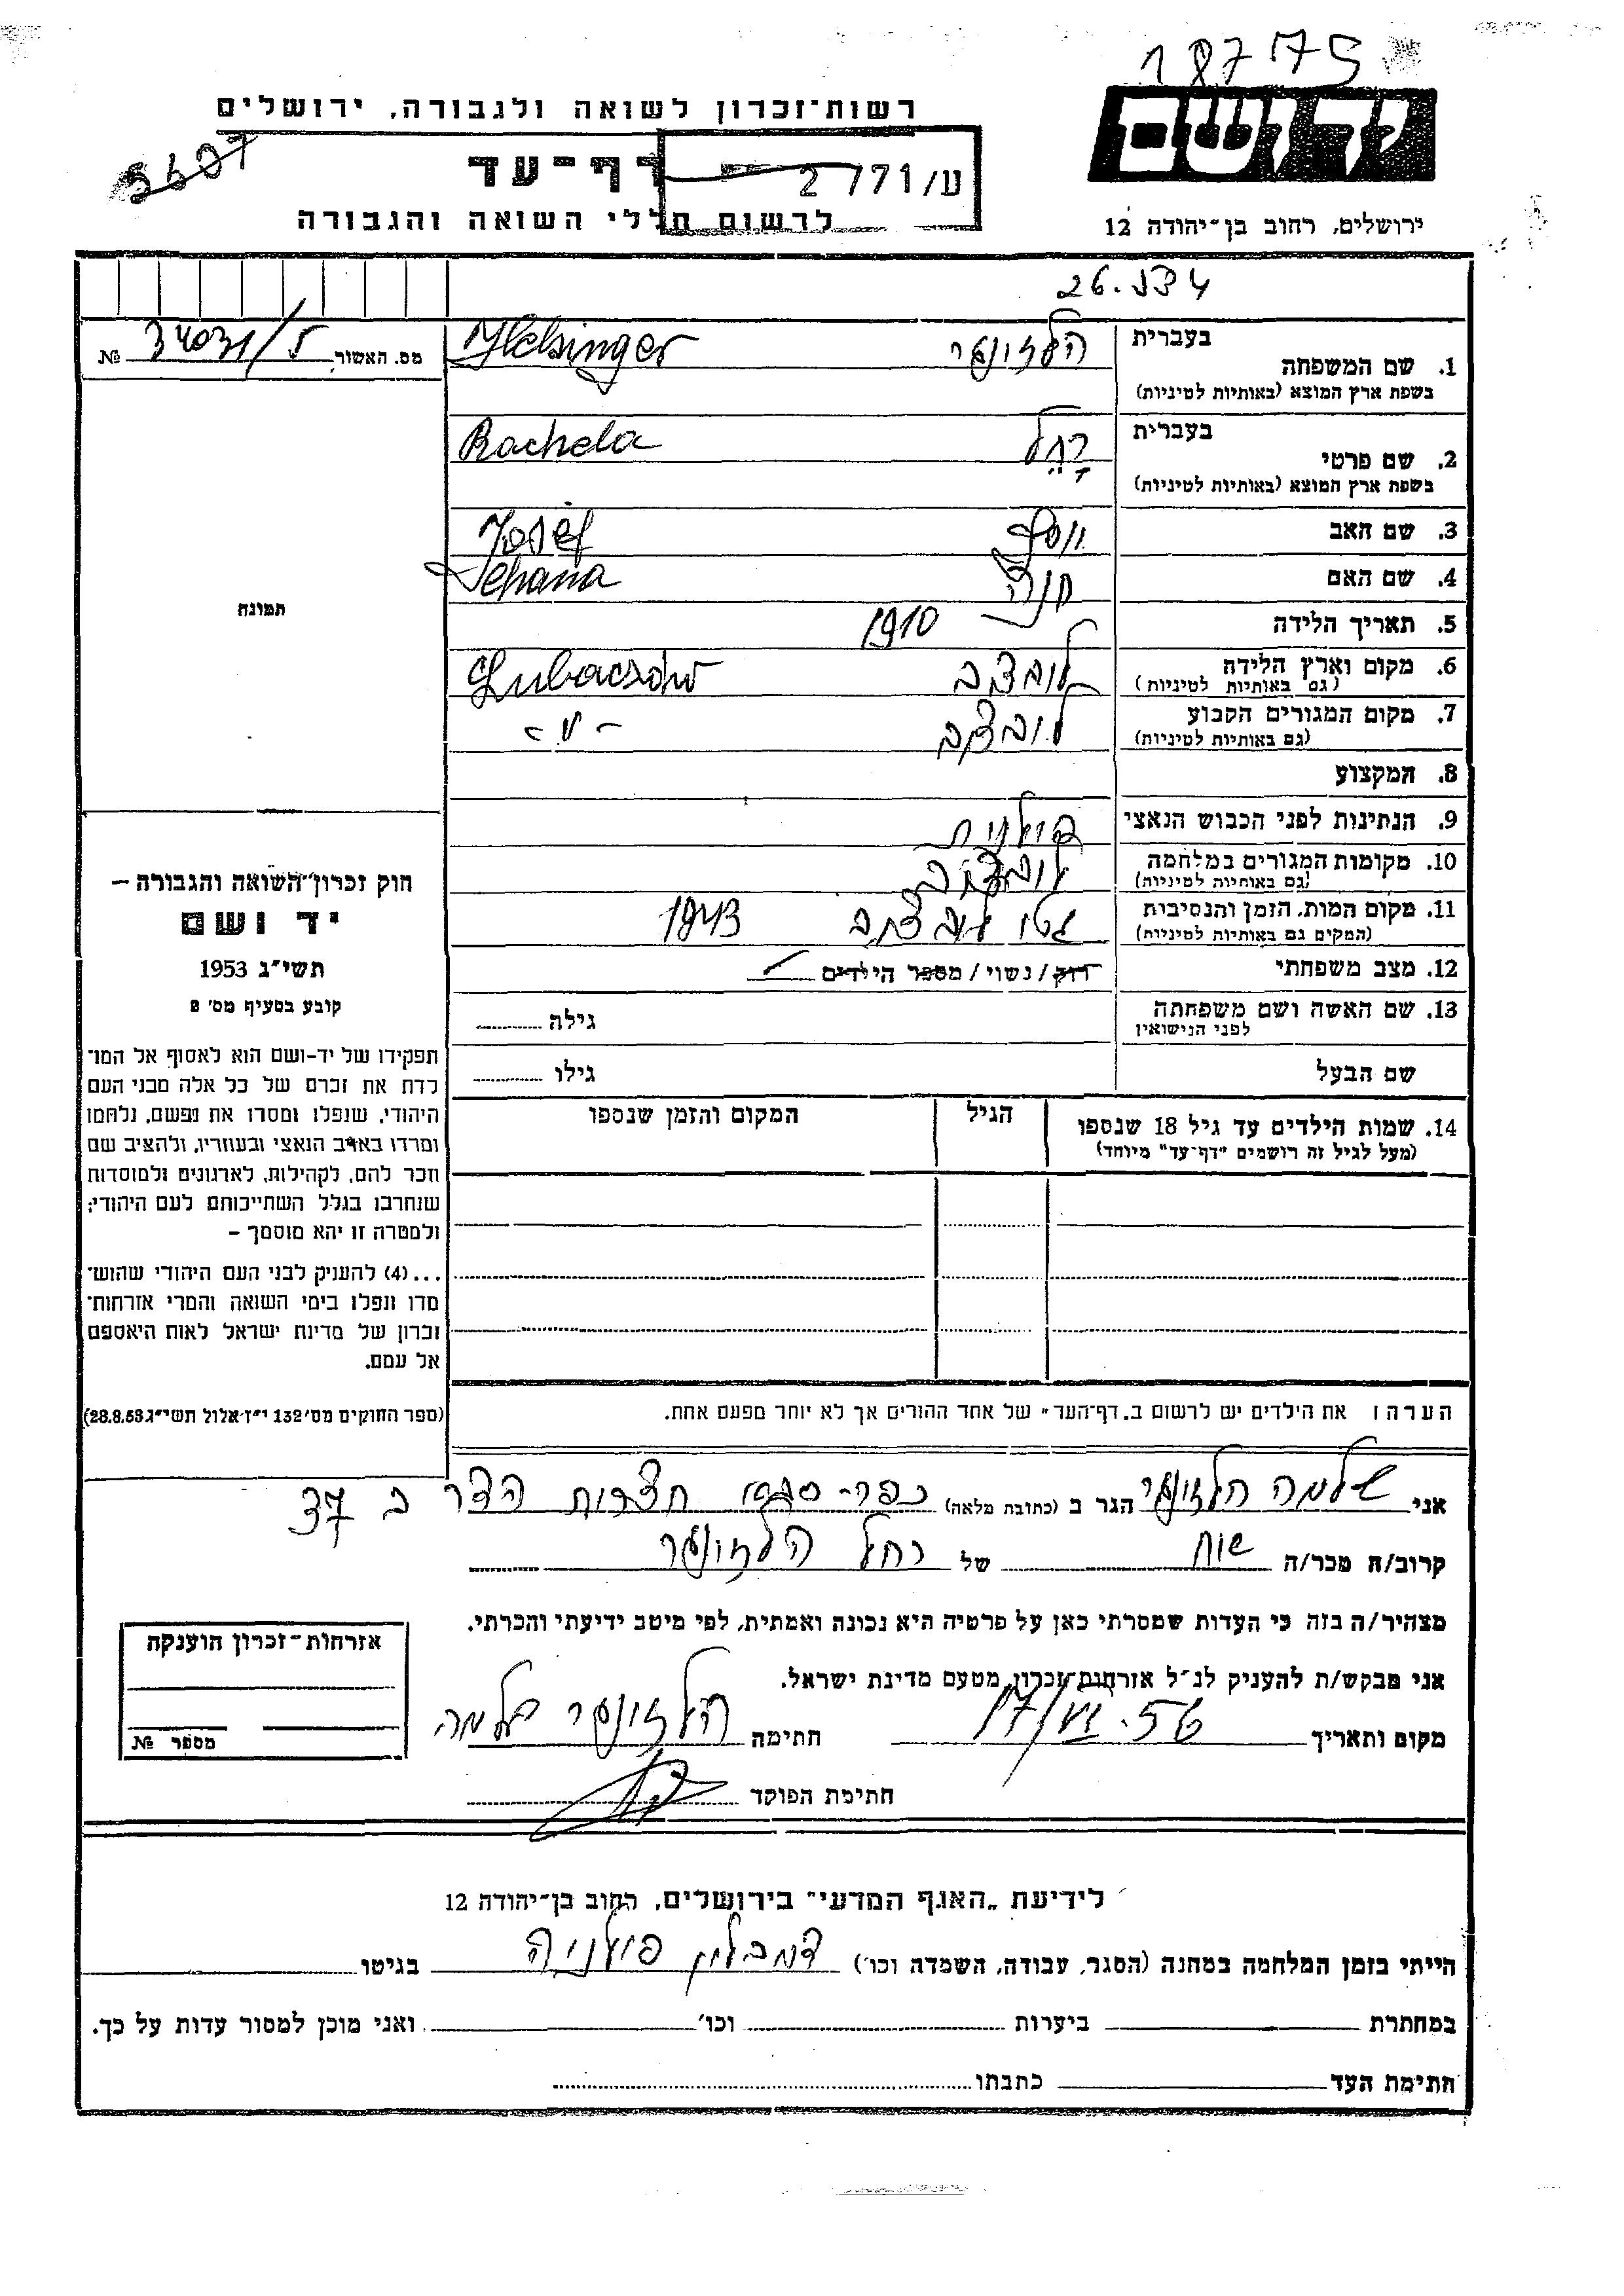 18775
רשות־זכרון לשואה ולגבורה, ירושלים
5607
דף־עד
ע/ 2771
לרשום חללי השואה והגבורה
יד ושם
ירושלים, רחוב בן־יהודה 12
26.534
מס. האשור № 34031/5
1. שם המשפחה בעברית הלזינגר Helsinger
בשפת ארץ המוצא (באותיות לטיניות)
2. שם פרטי בעברית רחל Rachela
בשפת ארץ המוצא (באותיות לטיניות)
3. שם האב יוסף Josef
4. שם האם חנה
5. תאריך הלידה 1910
6. מקום וארץ הלידה Lubaczów
(גם באותיות לטיניות)
7. מקום המגורים הקבוע -"-
(גם באותיות לטיניות)
8. המקצוע
9. הנתינות לפני הכבוש הנאצי פולנית
10. מקומות המגורים במלחמה
(גם באותיות לטיניות)
11. מקום המות, הזמן והנסיבות גטו 1943
(המקים גם באותיות לטיניות)
12. מצב משפחתי רווק/נשוי/מספר הילדים
13. שם האשה ושם משפחתה גילה
לפני הנישואין
שם הבעל גילו
14. שמות הילדים עד גיל 18 שנספו הגיל המקום והזמן שנספו
(מעל לגיל זה רושמים "דף־עד" מיוחד)
הערה: את הילדים יש לרשום ב„דף־העד" של אחד ההורים אך לא יותר מפעם אחת.
תמונה
חוק זכרון־השואה והגבורה –
יד ושם
תשי״ג 1953
קובע בסעיף מס׳ 2
תפקידו של יד-ושם הוא לאסוף אל המו־
לדת את זכרם של כל אלה מבני העם
היהודי, שנפלו ומסרו את נפשם, נלחמו
ומרדו באויב הנאצי ובעוזריו, ולהציב שם
וזכר להם, לקהילות, לארגונים ולמוסדות
שנחרבו בגלל השתייכותם לעם היהודי;
ולמטרה זו יהא מוסמך –
...(4) להעניק לבני העם היהודי שהוש־
מדו ונפלו בימי השואה והמרי אזרחות־
זכרון של מדינת ישראל לאות היאספם
אל עמם.
(ספר החוקים מס׳ 132 י״ז אלול תשי״ג 28.8.53)
אני שלמה הלזינגר הגר ב (כתובת מלאה) כפר-סבא חצרות הדר ב 37
קרוב/ה מכר/ה אח של רחל הלזינגר
מצהיר/ה בזה כי העדות שמסרתי כאן על פרטיה היא נכונה ואמתית, לפי מיטב ידיעתי והכרתי.
אני מבקש/ת להעניק לנ״ל אזרחות־זכרון מטעם מדינת ישראל.
מקום ותאריך 17/VI.56 חתימה הלזינגר שלמה
חתימת הפוקד
אזרחות־זכרון הוענקה
מספר №
לידיעת „האגף המדעי" בירושלים, רחוב בן־יהודה 12
הייתי בזמן המלחמה במחנה (הסגר, עבודה, השמדה וכו׳) פולניה בגיטו
במחתרת ביערות וכו׳ ואני מוכן למסור עדות על כך.
חתימת העד כתבתו